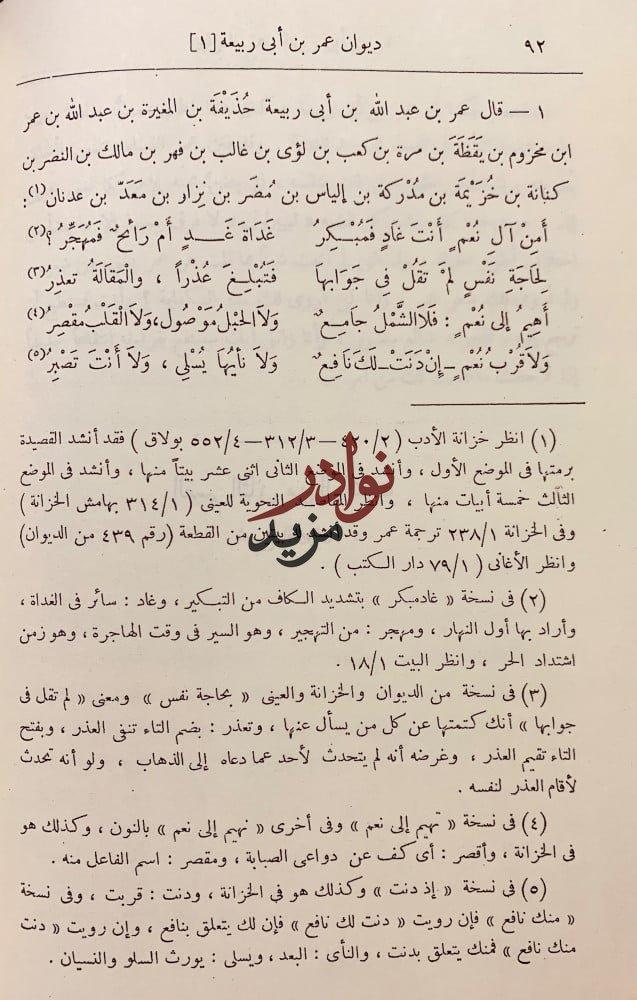 ٩٢ ديوان عمر بن أبى ربيعة [١]
١ — قال عمر بن عبد الله بن أبى ربيعة حُذَيْفَةَ بن المغيرة بن عبد الله بن عمر
ابن مخزوم بن يَقَظَةَ بن مرة بن كعب بن لؤى بن غالب بن فهر بن مالك بن النضر بن
كنانة بن خُزَيْمَةَ بن مُدْرِكة بن إلياس بن مُضَر بن نِزار بن مَعَدّ بن عدنان(١):
أَمِنْ آلِ نُعْمٍ أَنْتَ غَادٍ فَمُبْكِرُ غَدَاةَ غَدٍ أَمْ رَائحٌ فَمُهَجِّرُ؟(٢)
لِحَاجَةِ نَفْسٍ لَمْ تَقُلْ فى جَوَابِهَا فَتُبْلِغَ عُذْراً ، والْمَقَالَةُ تعذِرُ(٣)
أَهِيمُ إلى نُعْمٍ : فَلاَ الشَّمْلُ جامِعٌ وَلاَ الحَبْلُ مَوْصُول، وَلاَ الْقَلْبُ مقْصِرُ(٤)
وَلاَ قُرْبُ نُعْمٍ ـ إنْ دَنَتْ ـ لَكَ نَافِعٌ وَلاَ نَأْيُهَا يُسْلِى ، وَلاَ أَنْتَ تَصْبِرُ(٥)
(١) انظر خزانة الأدب ( ٤٢٠/٢ — ٣١٢/٣ — ٥٥٢/٤ بولاق ) فقد أنشد القصيدة
برمتها فى الموضع الأول ، وأنشد فى الموضع الثانى اثنى عشر بيتاً منها ، وأنشد فى الموضع
الثالث خمسة أبيات منها ، وانظر المقاصد النحوية للعينى ( ٣١٤/١ بهامش الخزانة )
وفى الخزانة ٢٣٨/١ ترجمة عمر وقد أنشد بيتين من القطعة (رقم ٤٣٩ من الديوان)
وانظر الأغانى ( ٧٩/١ دار الكتب ) .
نوادر
مزيد
(٢) فى نسخة « غاد مبكر » بتشديد الكاف من التبكير ، وغاد : سائر فى الغداة ،
وأراد بها أول النهار ، ومهجر : من التهجير ، وهو السير فى وقت الهاجرة ، وهو زمن
اشتداد الحر ، وانظر البيت ١٨/١ .
(٣) فى نسخة من الديوان والخزانة والعينى « بحاجة نفس » ومعنى « لم تقل فى
جوابها » أنك كتمتها عن كل من يسأل عنها ، وتعذر : بضم التاء تنفى العذر ، وبفتح
التاء تقيم العذر ، وغرضه أنه لم يتحدث لأحد عما دعاه إلى الذهاب ، ولو أنه تحدث
لأقام العذر لنفسه .
(٤) فى نسخة « تهيم إلى نعم » وفى أخرى « نهيم إلى نعم » بالنون ، وكذلك هو
فى الخزانة ، وأقصر : أى كف عن دواعى الصبابة ، ومقصر : اسم الفاعل منه .
(٥) فى نسخة « إذ دنت » وكذلك هو فى الخزانة ، ودنت : قربت ، وفى نسخة
« منك نافع » فإن رويت « دنت لك نافع » فإن لك يتعلق بنافع ، وإن رويت « دنت
منك نافع » فمنك يتعلق بدنت ، والنأى : البعد ، ويسلى : يورث السلو والنسيان .